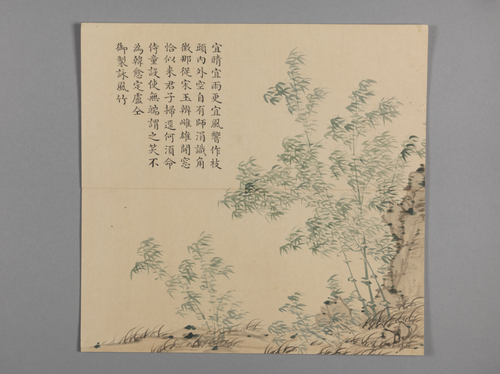 宜晴宜雨更宜風響作枝
頭內外空自有師涓識角
徵那從宋玉辨雌雄開窓
恰似來君子掃逕何須命
侍童設使無端謂之笑不
為韓愈定盧仝
御製詠風竹